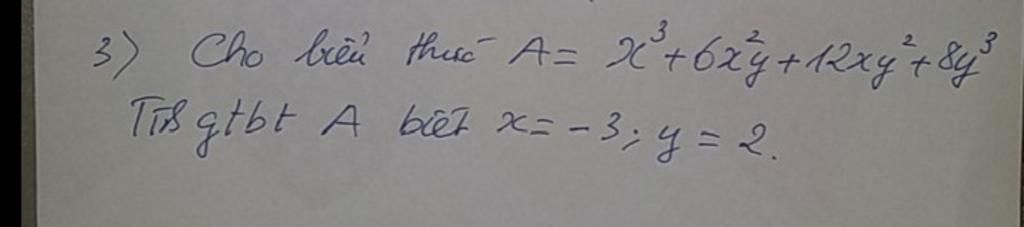 3) Cho biểu thức A = x³ + 6x²y + 12xy² + 8y³
Tính gtbt A biết x = -3; y = 2.